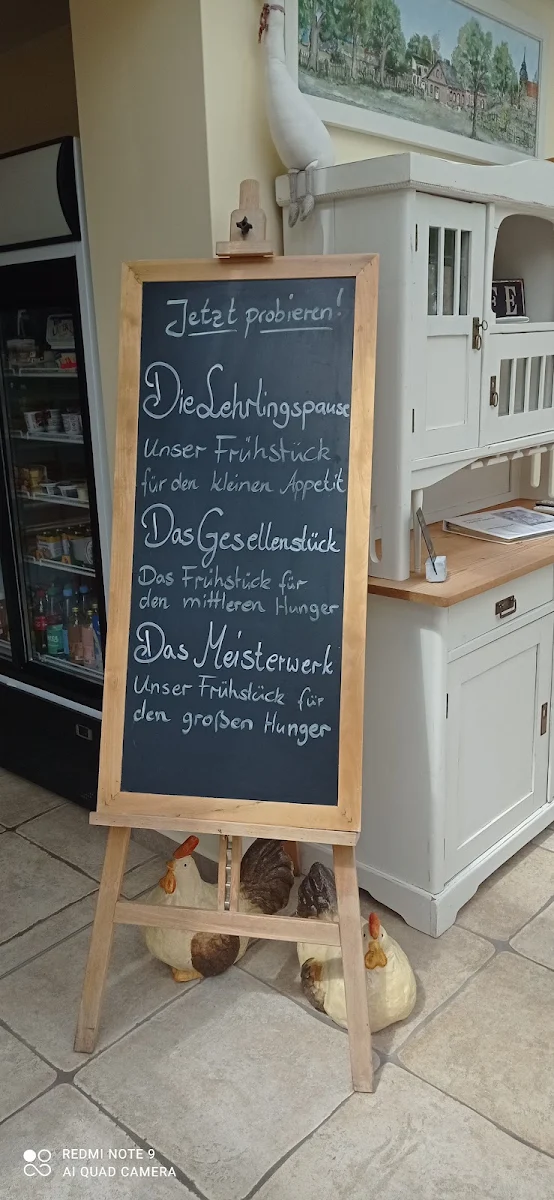 Jetzt probieren!
Die Lehrlingspause
Unser Frühstück
für den kleinen Appetit
Das Gesellenstück
Das Frühstück für
den mittleren Hunger
Das Meisterwerk
Unser Frühstück für
den großen Hunger
REDMI NOTE 9
AI QUAD CAMERA